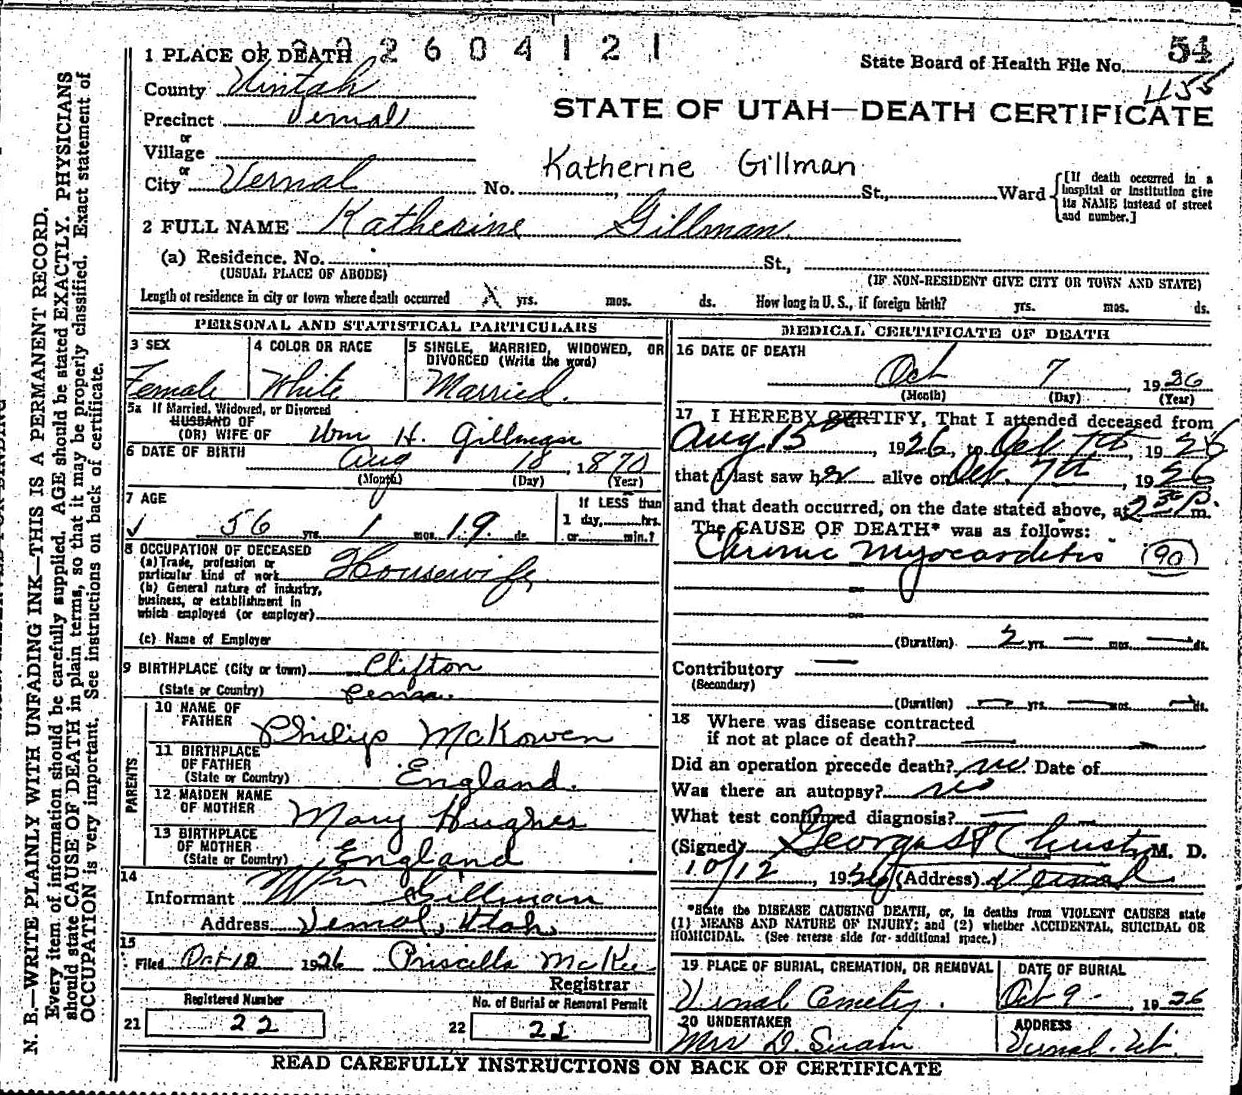 2 6 0 4 1 2 1
54
1 PLACE OF DEATH
State Board of Health File No.
1155
County Uintah
STATE OF UTAH—DEATH CERTIFICATE
Precinct Vernal
or
Village
Katherine Gillman
or
City Vernal No. , St., Ward
[If death occurred in a hospital or institution give its NAME instead of street and number.]
2 FULL NAME Katherine Gillman
(a) Residence. No. St.,
(USUAL PLACE OF ABODE) (IF NON-RESIDENT GIVE CITY OR TOWN AND STATE)
Length of residence in city or town where death occurred X yrs. mos. ds. How long in U. S., if foreign birth? yrs. mos. ds.
PERSONAL AND STATISTICAL PARTICULARS
3 SEX 4 COLOR OR RACE 5 SINGLE, MARRIED, WIDOWED, OR DIVORCED (Write the word)
Female White Married.
5a If Married, Widowed, or Divorced
HUSBAND OF
(OR) WIFE OF Wm H. Gillman
6 DATE OF BIRTH Aug 18, 1870
(Month) (Day) (Year)
7 AGE If LESS than
1 day, hrs.
56 yrs. 1 mos. 19 ds. or min.?
8 OCCUPATION OF DECEASED
(a) Trade, profession or
particular kind of work Housewife
(b) General nature of industry,
business, or establishment in
which employed (or employer)
(c) Name of Employer
9 BIRTHPLACE (City or town) Clifton
(State or Country) Penna.
PARENTS
10 NAME OF
FATHER Philip McKowen
11 BIRTHPLACE
OF FATHER
(State or Country) England.
12 MAIDEN NAME
OF MOTHER Mary Hughes
13 BIRTHPLACE
OF MOTHER
(State or Country) England
14
Informant Wm Gillman
Address Vernal, Utah
15
Filed Oct 12 1926 Priscilla McKee
Registrar
Registered Number No. of Burial or Removal Permit
21 22 22 21
MEDICAL CERTIFICATE OF DEATH
16 DATE OF DEATH
Oct 7, 1926
(Month) (Day) (Year)
17 I HEREBY CERTIFY, That I attended deceased from
Aug 15, 1926, to Oct 7th, 1926
that I last saw her alive on Oct. 7th, 1926
and that death occurred, on the date stated above, at 2 30 P. m.
The CAUSE OF DEATH* was as follows:
Chronic Myocarditis (90)
(Duration) 2 yrs. — mos. — ds.
Contributory —
(Secondary)
(Duration) — yrs. — mos. — ds.
18 Where was disease contracted
if not at place of death? —
Did an operation precede death? no Date of
Was there an autopsy? no
What test confirmed diagnosis? —
(Signed) M. D.
10/12, 1926 (Address) Vernal
*State the DISEASE CAUSING DEATH, or, in deaths from VIOLENT CAUSES state
(1) MEANS AND NATURE OF INJURY; and (2) whether ACCIDENTAL, SUICIDAL OR
HOMICIDAL. (See reverse side for additional space.)
19 PLACE OF BURIAL, CREMATION, OR REMOVAL DATE OF BURIAL
Vernal Cemetery. Oct 9 - 1926
20 UNDERTAKER ADDRESS
Mrs D. Swain Vernal. Ut.
READ CAREFULLY INSTRUCTIONS ON BACK OF CERTIFICATE
N. B.—WRITE PLAINLY WITH UNFADING INK—THIS IS A PERMANENT RECORD.
Every item of information should be carefully supplied. AGE should be stated EXACTLY. PHYSICIANS
should state CAUSE OF DEATH in plain terms, so that it may be properly classified. Exact statement of
OCCUPATION is very important. See instructions on back of certificate.